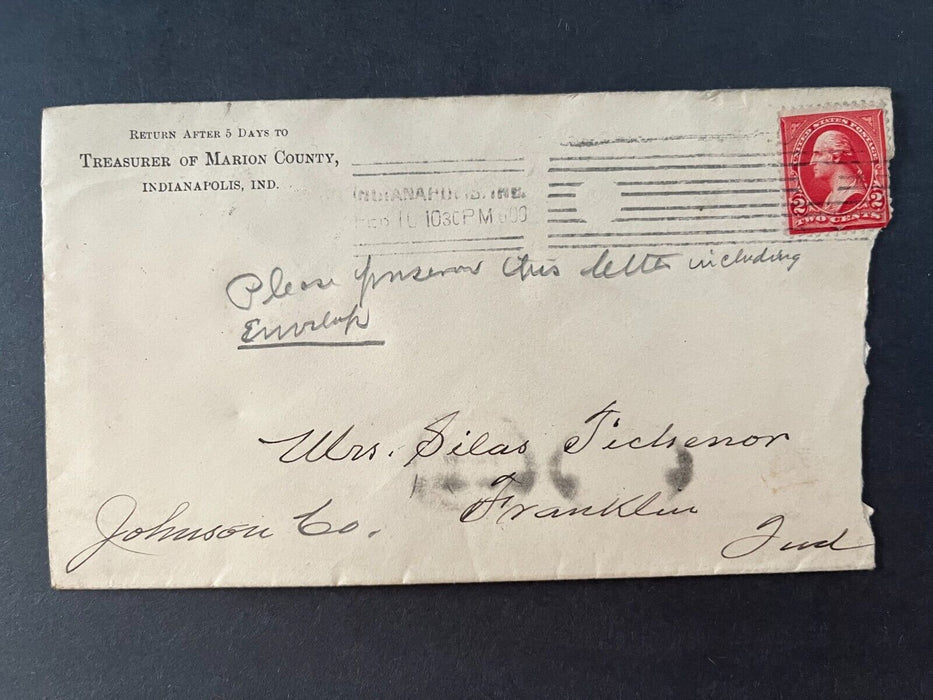 RETURN AFTER 5 DAYS TO
TREASURER OF MARION COUNTY,
INDIANAPOLIS, IND.
INDIANAPOLIS, IND.
FEB 10 1030PM
UNITED STATES POSTAGE
2 2
TWO CENTS
Please preserve this letter including
Envelop
Mrs. Silas Tichenor
Franklin
Johnson Co.
Ind